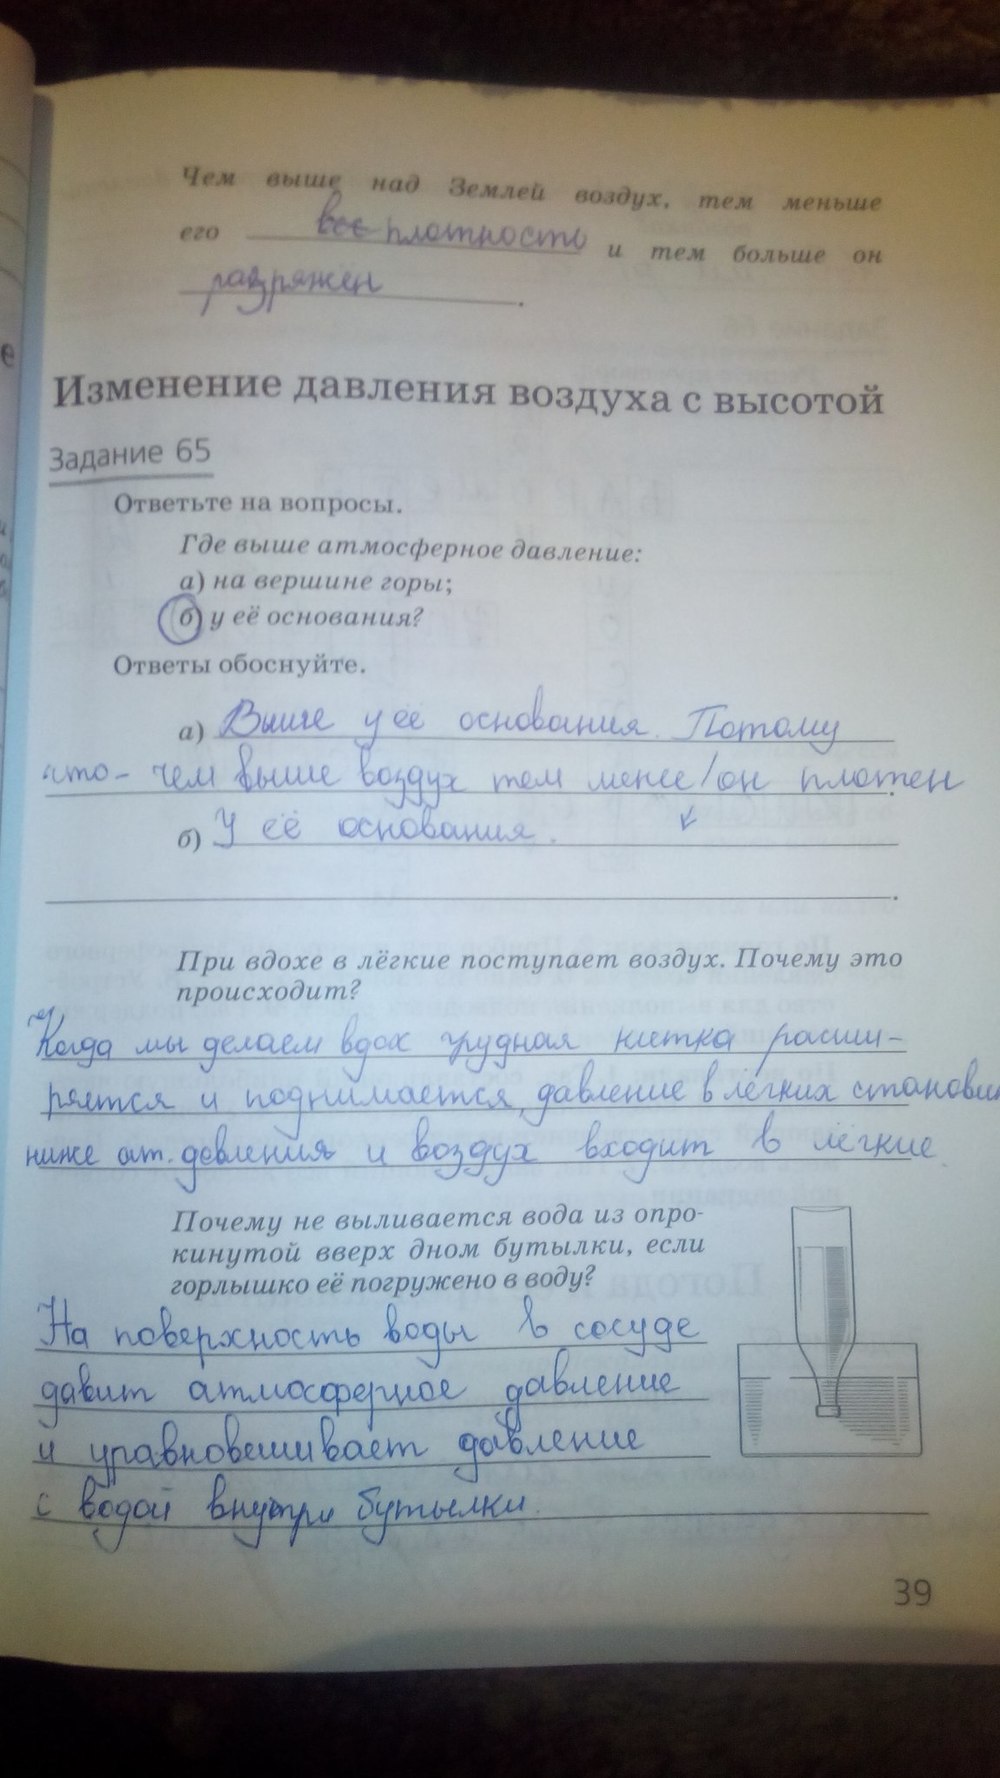 Чем выше над Землей воздух, тем меньше
его вес плотность и тем больше он
разряжен.
Изменение давления воздуха с высотой
Задание 65
Ответьте на вопросы.
Где выше атмосферное давление:
а) на вершине горы;
б) у её основания?
Ответы обоснуйте.
а) Выше у её основания. Потому
что - чем выше воздух тем менее он плотен.
б) У её основания.
При вдохе в лёгкие поступает воздух. Почему это
происходит?
Когда мы делаем вдох грудная клетка расши-
ряется и поднимается, давление в лёгких
ниже ат. давления и воздух входит в лёгкие.
Почему не выливается вода из опро-
кинутой вверх дном бутылки, если
горлышко её погружено в воду?
На поверхность воды в сосуде
давит атмосферное давление
и уравновешивает давление
с водой внутри бутылки.
39